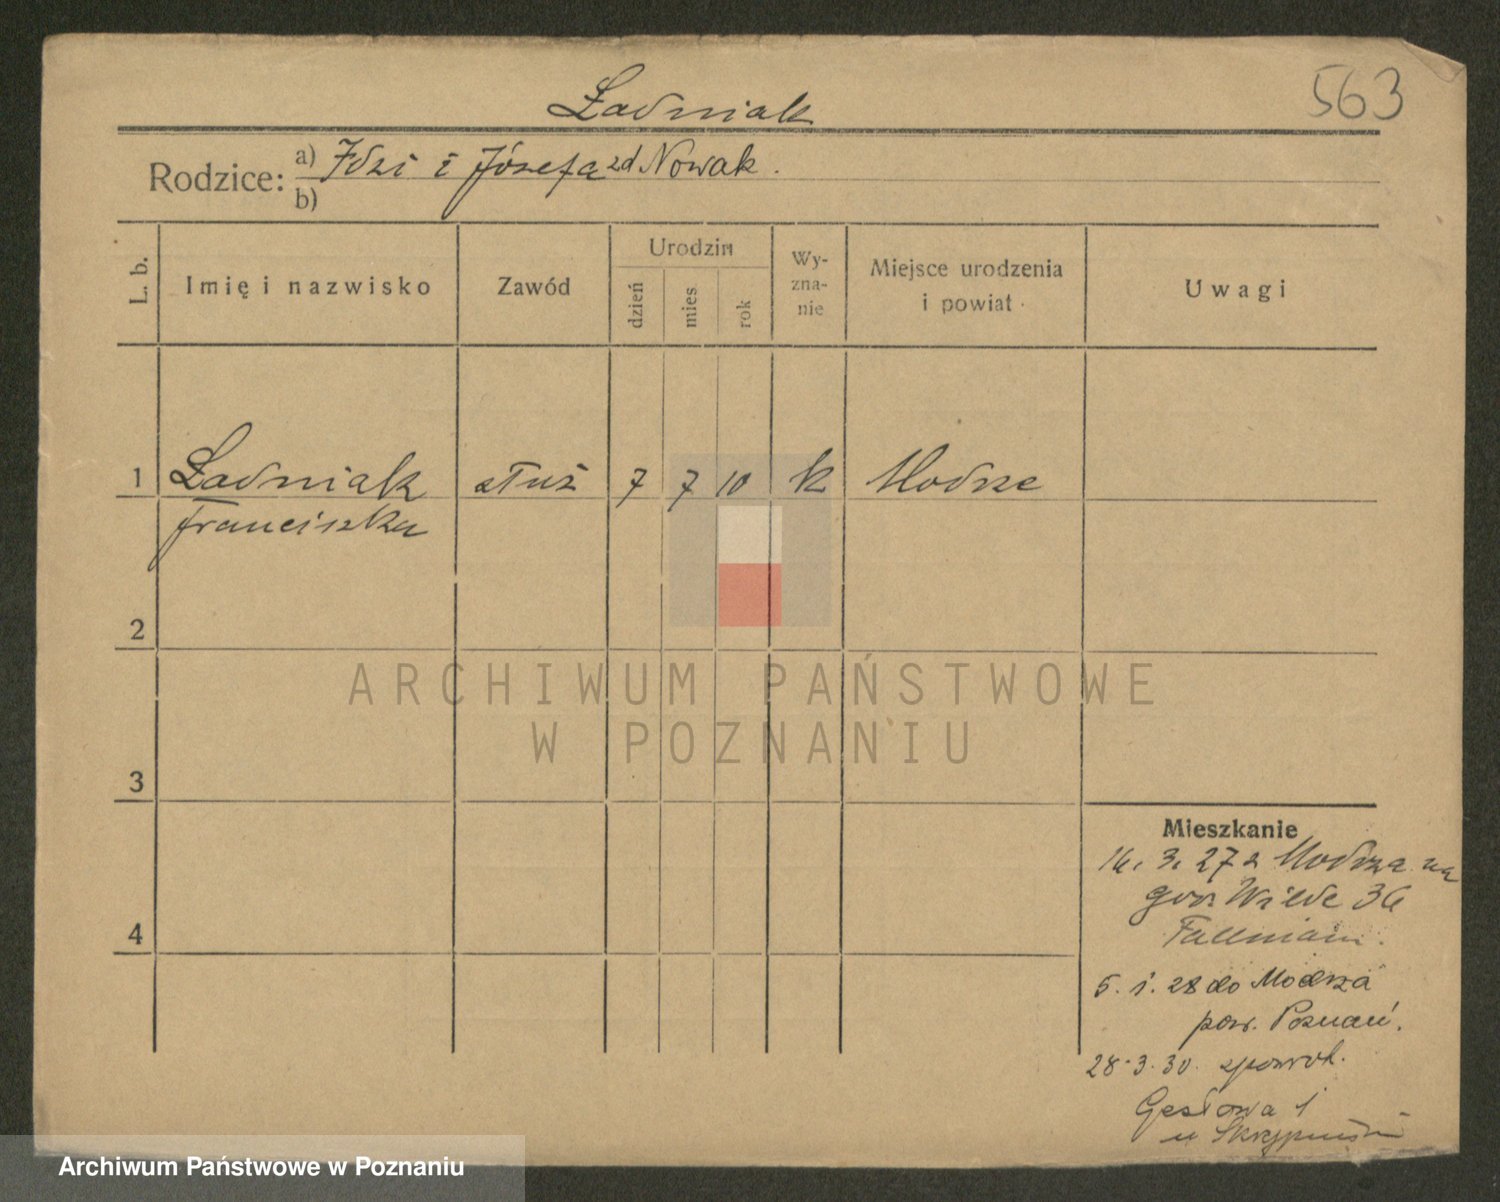 563
Ładniak
Rodzice: a) Idzi i Józefa zd Nowak.
b)
L. b.
Imię i nazwisko
Zawód
Urodzin
dzień
mies
rok
Wy-
zna-
nie
Miejsce urodzenia
i powiat
Uwagi
1 Ładniak służ 7 7 10 k Modrze
Franciszka
2
3
4
ARCHIWUM PAŃSTWOWE
W POZNANIU
Mieszkanie
3. 27 z Modrza na
Wilde 36
5. 1. 28 do Modrza
pow. Poznań.
28.3.30. zpowrot.
1
u
Archiwum Państwowe w Poznaniu